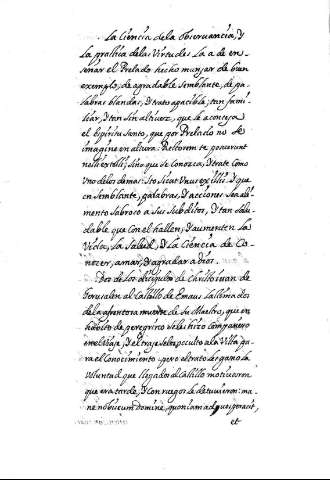 La Ciencia de la Observancia, y
La practica de las Virtudes La a de en-
señar el Prelado hecho manjar de buen
exemplo, de agradable semblante, de pa-
labras blandas, y trato apacible; tan fami-
liar, y tan sin altivez, que le aconseja
el Espiritu Santo, que por Prelado no se
imagine en altura: Rectorem te posuerunt
noli extolli; sino que se conozca, y trate como
uno de los demas: Esto sicut unus ex illis. y que
en semblante, palabras, y acciones sea ali-
mento sabroso a sus subditos, y tan salu-
dable que con el hallen, y aumenten la
Vida, la salud, y La Ciencia de Co-
nocer, amar, y agradar a Dios.
Dos de los discipulos de Christo iban de
Jerusalen al Castillo de Emaus lastimados
de la afrentosa muerte de su Maestro, que en
habito de peregrino se les hizo Compañero
en el viaje; y el traje le hizo oculto a la Vista pa-
ra el Conocimiento: pero el trato les gano la
Voluntad, que llegados al Castillo motivaron
que era tarde, y con ruegos le detuvieron: ma-
ne nobiscum domine, quoniam advesperascit,
et